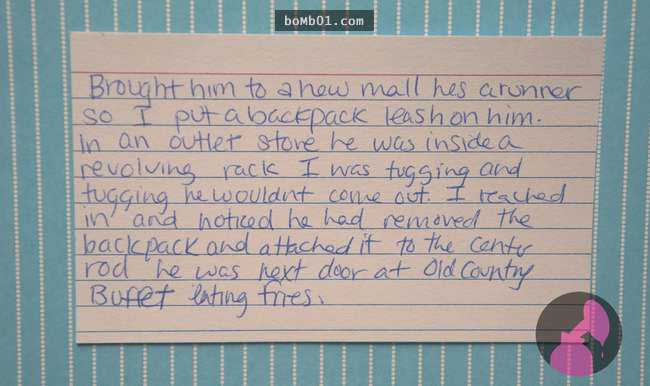 boMb01.com
Brought him to a new mall hes a runner
so I put a backpack leash on him.
In an outlet store he was inside a
revolving rack I was tugging and
tugging he wouldnt come out. I reached
in and noticed he had removed the
backpack and attached it to the center
rod he was next door at Old Country
Buffet eating fries.